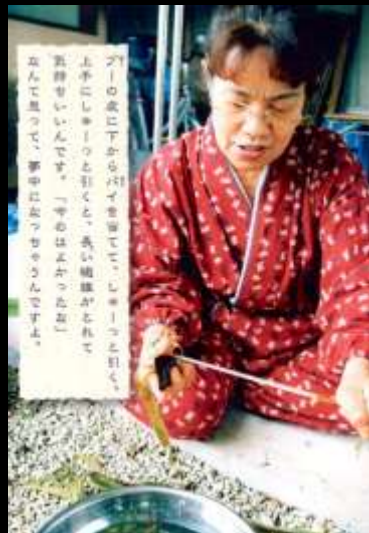 ブーの皮に下からパイを当てて、しゅーっと引く。
上手にしゅーっと引くと、長い繊維がとれて
気持ちいいんです。「今のはよかったな」
なんて思って、夢中になっちゃうんですよ。